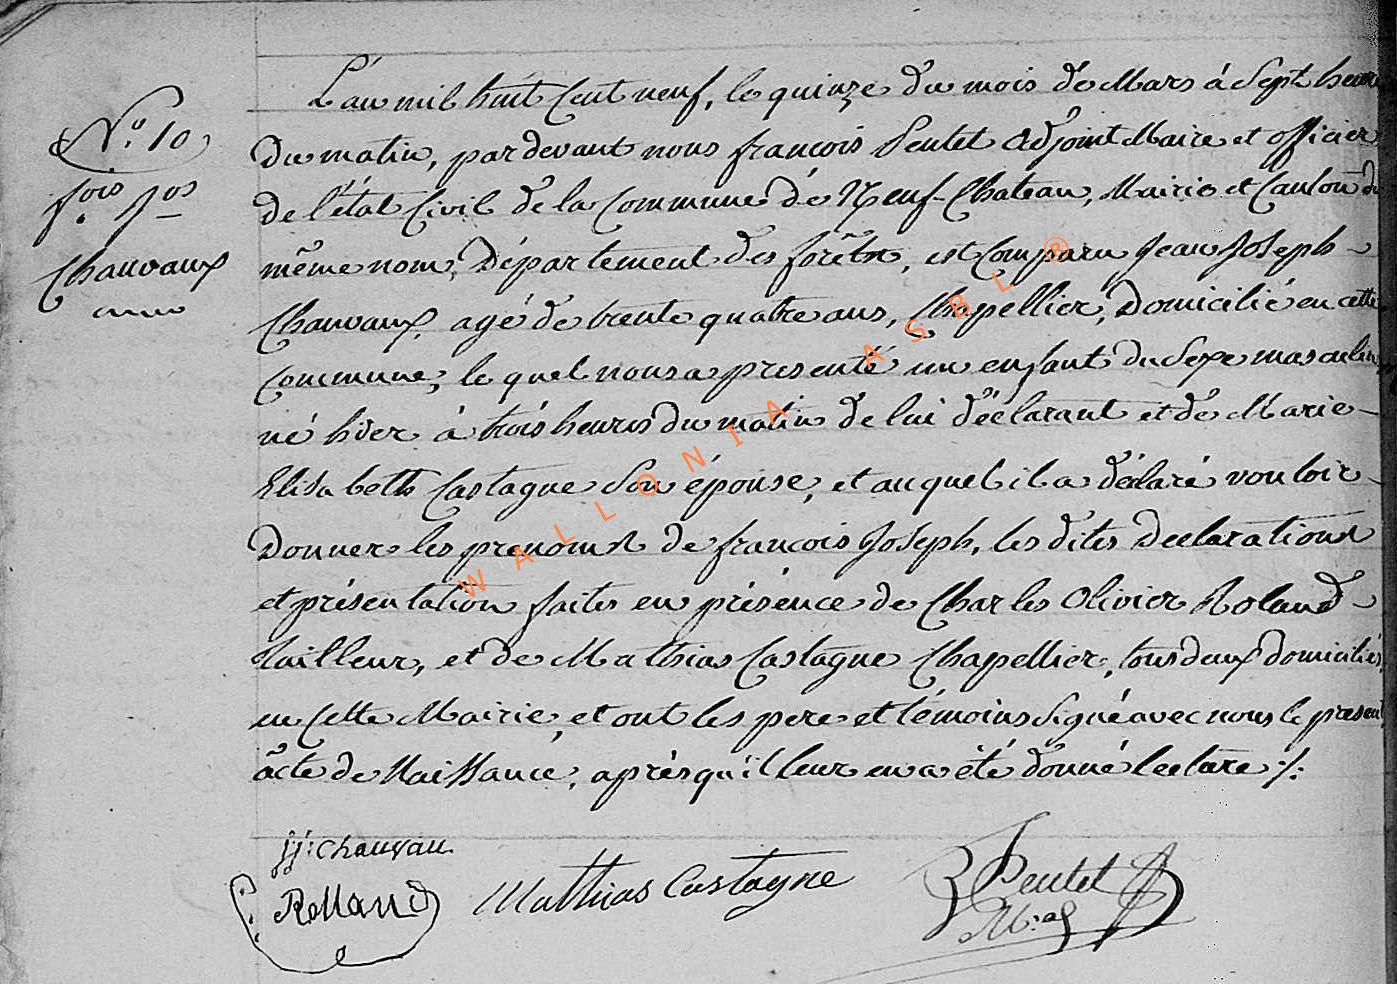 L'an mil huit Cent neuf, le quinze du mois de Mars à Sept heures
N.o 10
du matin, pardevant nous françois Pentet Adjoint Maire et officier
fois Jos
de l'état Civil de la Commune de Neuf-Chateau, Mairie et Canton du
Chauvaux
même nom, Département des forêts, est Comparu Jean Joseph
Chauvaux, agé de trente quatre ans, Chapellier, Domicilié en cette
Commune, le quel nous a presenté un enfant du Sexe masculin
né hier à trois heures du matin de lui déclarant et de Marie
Elisabeth Castagne Son épouse, et auquel il a déclaré vouloir
Donner les prenoms de françois Joseph, les dites Declarations
et présentation faites en présence de Charles Olivier Roland
Tailleur, et de Mathias Castagne Chapellier, tous deux domiciliés
en Cette Mairie, et ont les pere et témoins Signé avec nous le present
àcte de Naissance, après qu'il leur en a été donné lecture ./.
jj: chauvau
Rolland
Mathias Castagne
Pentet
WALLONIA ASBL ®